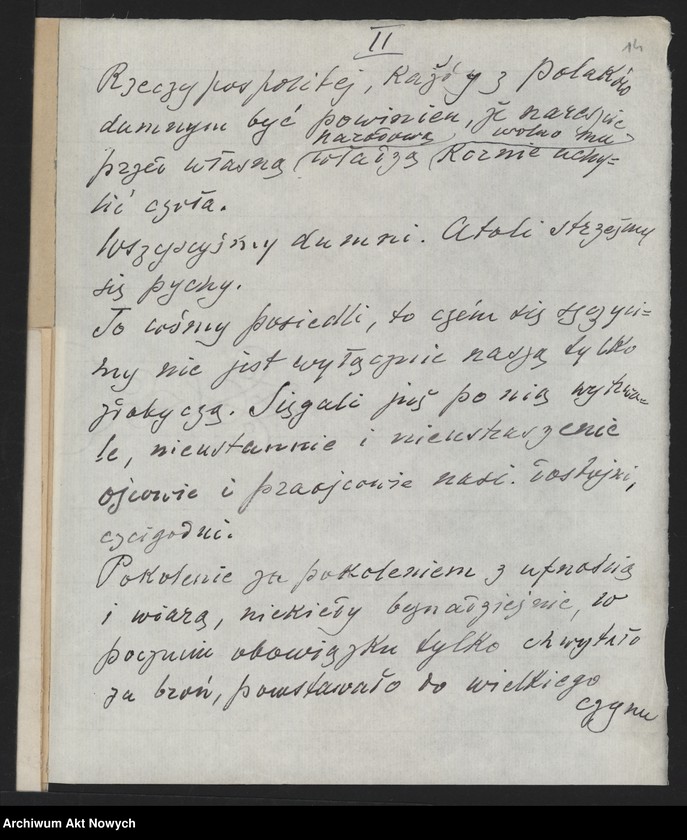 II
14
Rzeczypospolitej, każdy z Polaków
dumnym być powinien, że nareszcie
narodową wolno mu
przed własną władzą kornie uchy-
lić czoła.
Wszyscyśmy dumni. Atoli strzeżmy
się pychy.
To cośmy posiedli, to czém się szczyci-
my nie jest wyłącznie naszą tylko
zdobyczą. Sięgali już po nią wytrwa-
le, nieustannie i nieustraszenie
ojcowie i praojcowie nasi. Dostojni,
czcigodni.
Pokolenie za pokoleniem z ufnością
i wiarą, niekiedy beznadziejnie, w
poczuciu obowiązku tylko chwytało
za broń, powstawało do wielkiego
czynu
Archiwum Akt Nowych